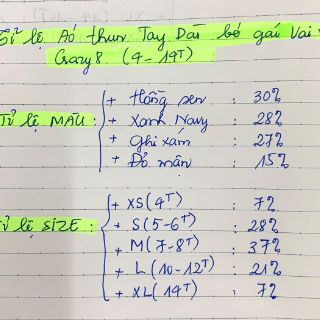 Tỷ lệ Áo thun Tay Dài bé gái Vải
Crazy8. (4-14T)
+ Hồng sen : 30%
+ Xanh Navy : 28%
Tỷ lệ MÀU : + Ghi xám : 27%
+ Đỏ mận : 15%
+ XS(4T) : 7%
+ S(5-6T) : 28%
Tỷ lệ SIZE : + M(7-8T) : 37%
+ L(10-12T) : 21%
+ XL(14T) : 7%